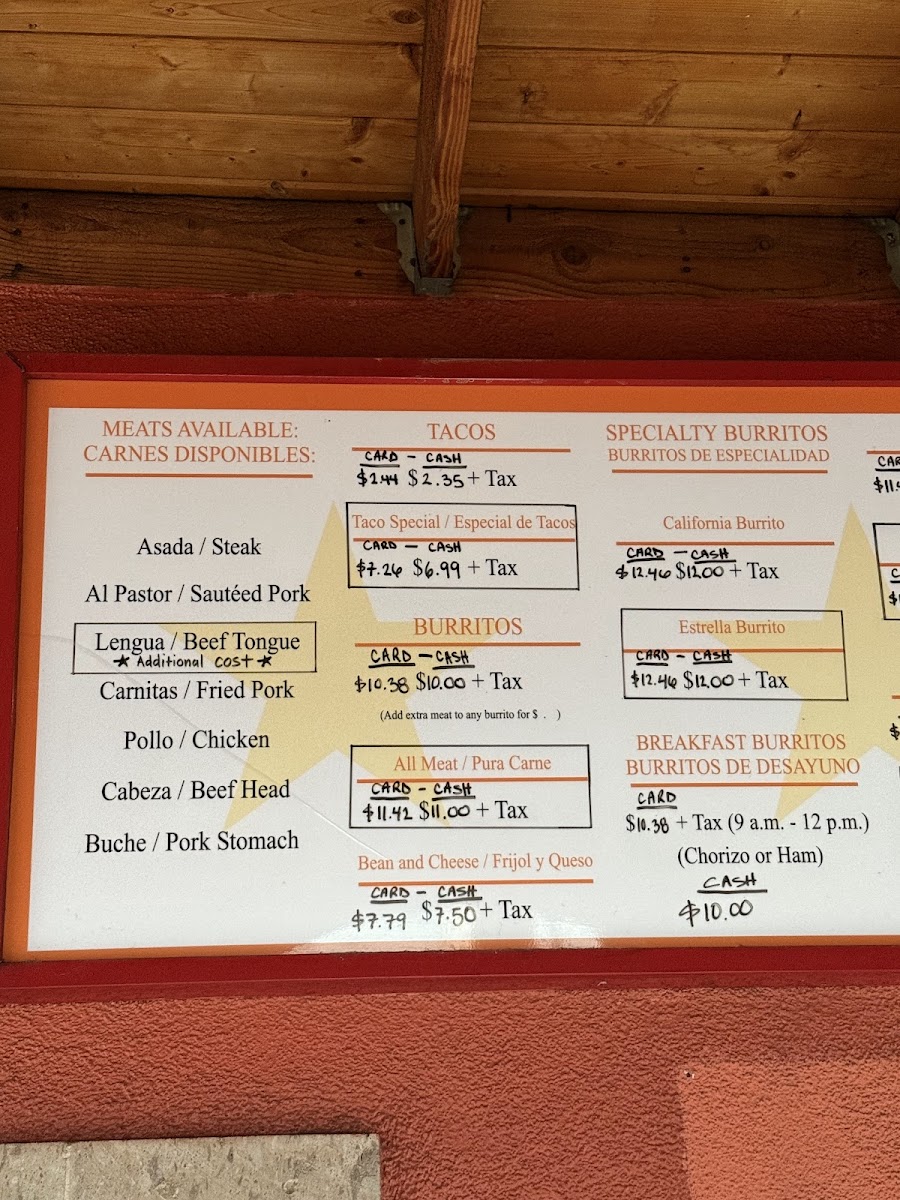 MEATS AVAILABLE:
CARNES DISPONIBLES:
Asada / Steak
Al Pastor / Sautéed Pork
Lengua / Beef Tongue
★ Additional cost ★
Carnitas / Fried Pork
Pollo / Chicken
Cabeza / Beef Head
Buche / Pork Stomach
TACOS
CARD - CASH
$2.44 $2.35 + Tax
Taco Special / Especial de Tacos
CARD - CASH
$7.26 $6.99 + Tax
BURRITOS
CARD - CASH
$10.38 $10.00 + Tax
(Add extra meat to any burrito for $ . )
All Meat / Pura Carne
CARD - CASH
$11.42 $11.00 + Tax
Bean and Cheese / Frijol y Queso
CARD - CASH
$7.79 $7.50 + Tax
SPECIALTY BURRITOS
BURRITOS DE ESPECIALIDAD
California Burrito
CARD - CASH
$12.46 $12.00 + Tax
Estrella Burrito
CARD - CASH
$12.46 $12.00 + Tax
BREAKFAST BURRITOS
BURRITOS DE DESAYUNO
CARD
$10.38 + Tax (9 a.m. - 12 p.m.)
(Chorizo or Ham)
CASH
$10.00